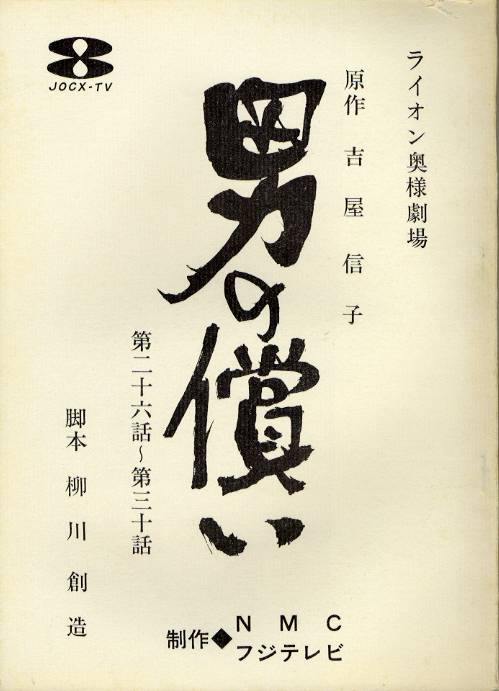 JOCX-TV
ライオン奥様劇場
原作 吉屋信子
男の償い
第二十六話～第三十話
脚本 柳川創造
制作◆NMC
フジテレビ